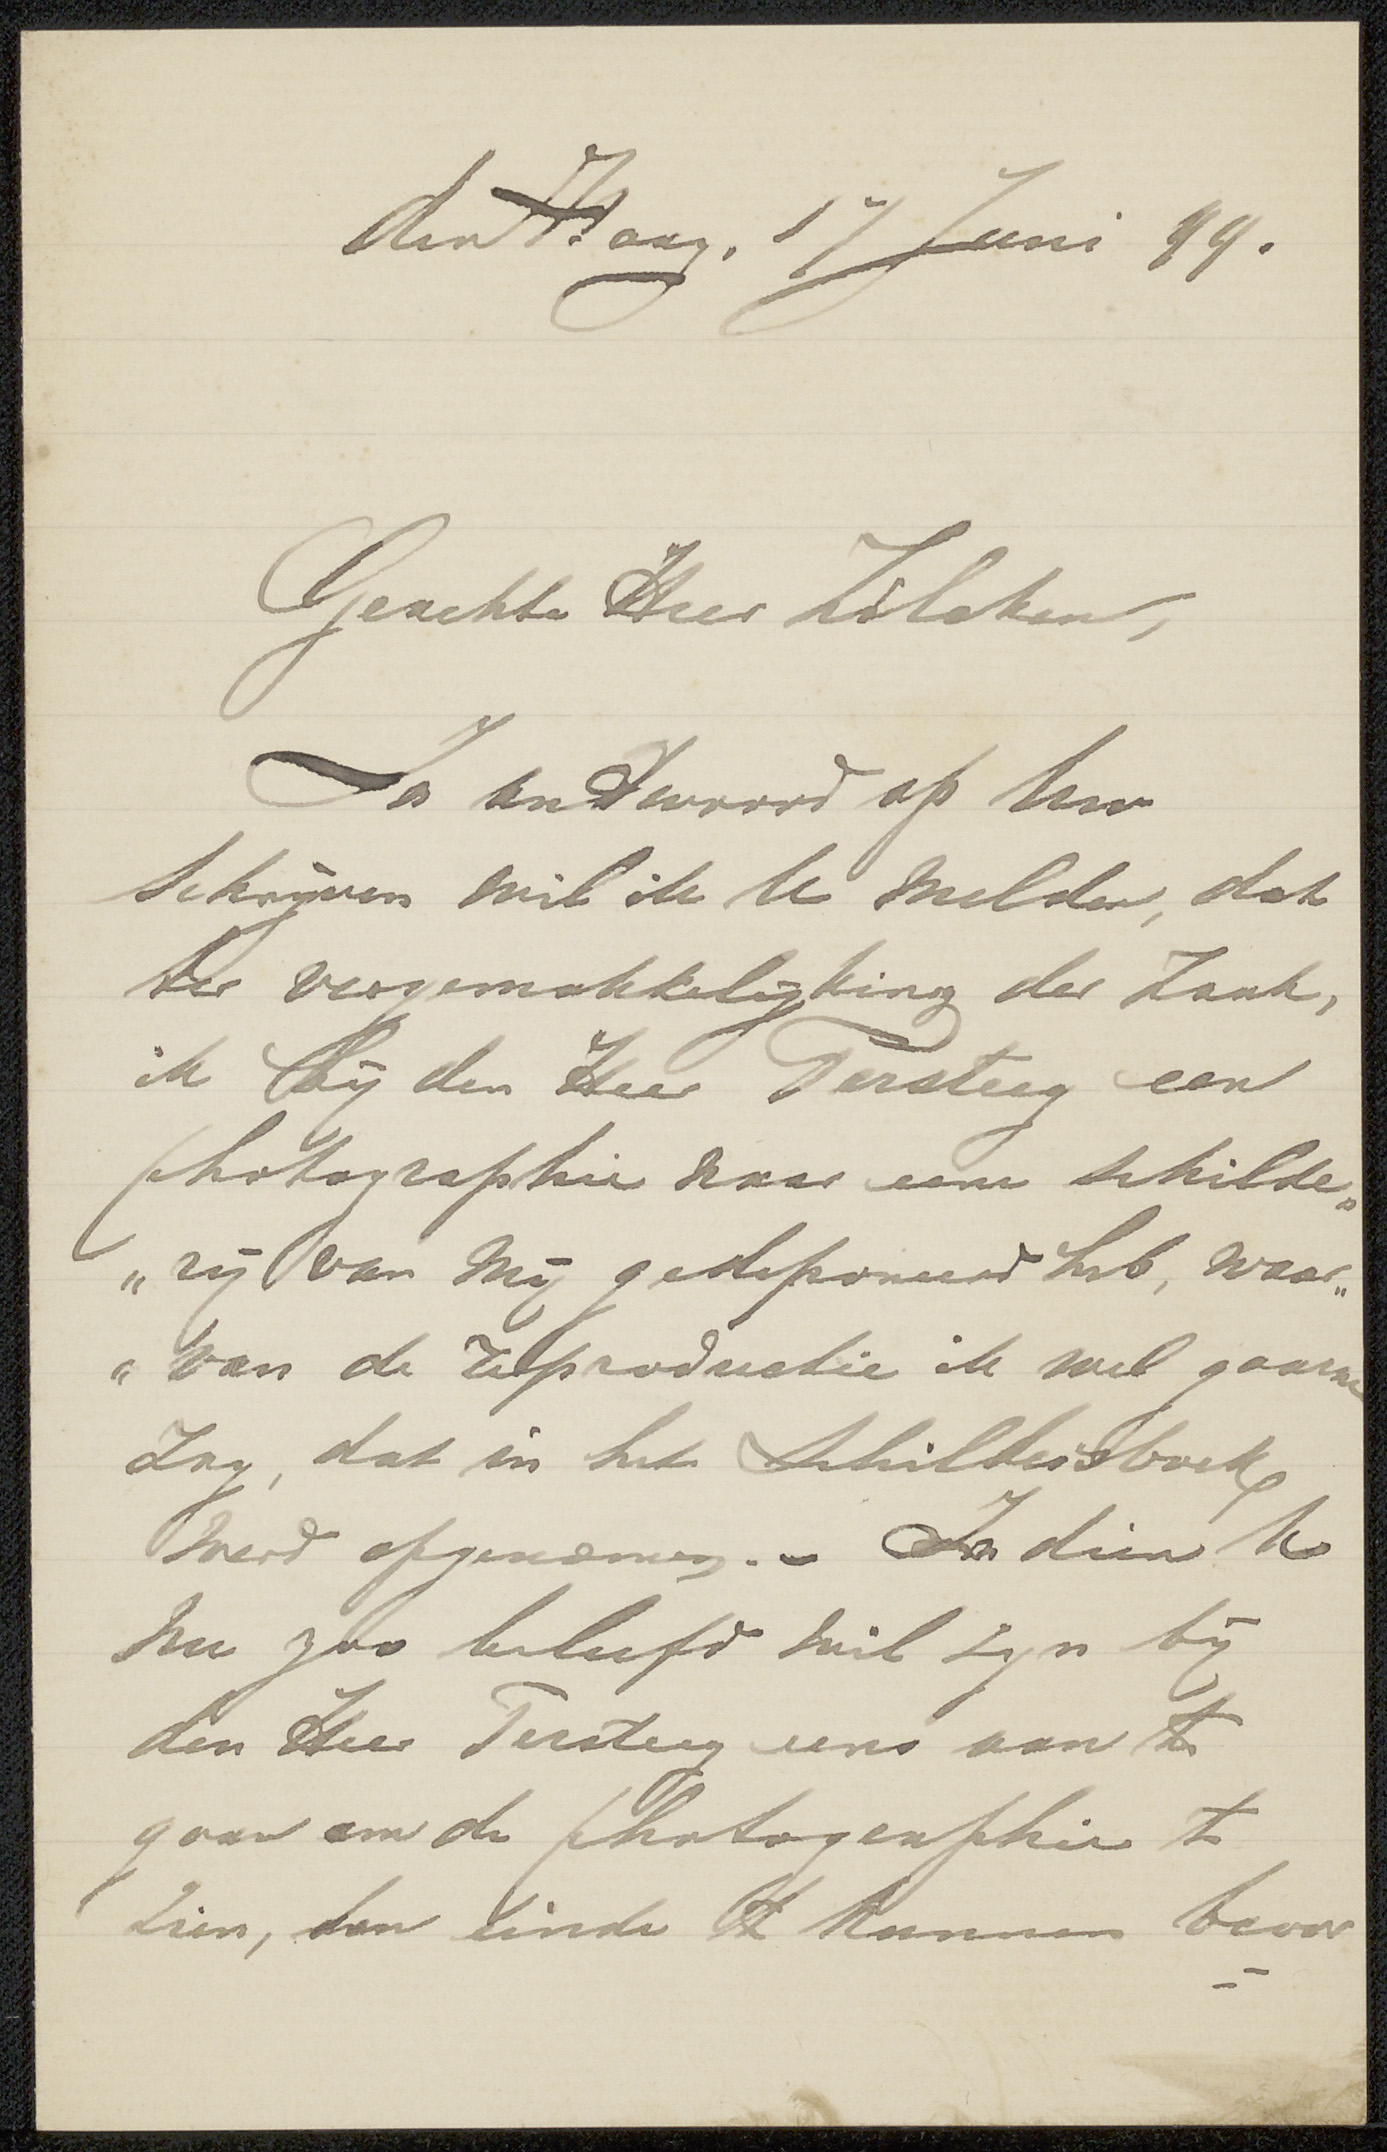 den Haag, 17 Juni 99.
Geachte Heer Zilcken,
In antwoord op Uw
schrijven wil ik U melden, dat
ter vergemakkelijking der zaak,
ik bij den Heer Tersteeg een
photographie naar eene schilde„
„rij van mij gedeponeerd heb, waar„
„van de reproductie ik wel gaarne
zag, dat in het Schildersboek
werd opgenomen. – Indien U
nu zoo beleefd wil zijn bij
den Heer Tersteeg eens aan te
gaan om de photographie te
zien, ten einde te kunnen beoor
=